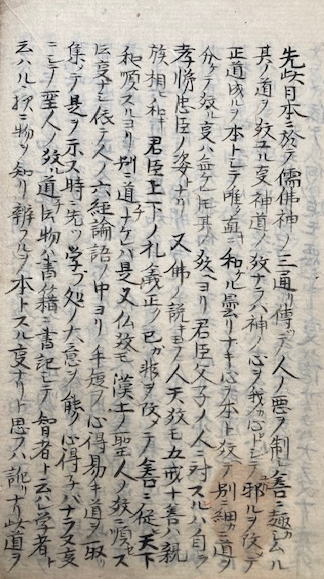 先此日本ニ於テ儒佛神ノ三通リ傳テ人ノ悪ヲ制シ善ニ趣カシムル
其ノ道ヲ教ユル叓神道ノ教ナラハ神ノ心ヲ我カ心トシテ邪ルヲ改テ
正直成ルヲ本トシテ唯ノ皿ニ和ケル曇リナキ心ヲ本ト教テ別細ニ道ヲ
分ケテ教ル叓ハ無シ 其ノ教ヘヨリ君臣父子ノ人ニ対スルハ自ラ
孝悌忠臣ノ姿トナリ 又佛ノ説玉フ人天教モ五戒十善ハ親
族相ヒ和シ 君臣上下ノ礼義正ク己カ非ヲ改メテ善ニ従 天下
和順スルヨリ別ニ道ナケレハ是又仏教モ漢土ノ聖人ノ教ニ順セス
ト云叓ナシ 依テ人ノ六経論語ノ中ヨリ手短ク心得易キ道ヲ取リ
集メテ是ヲ示ス 時ニ先ツ学フ処ノ大意ヲ能ク心得子バナラヌ叓
ニシテ聖人ノ教ル道ハ物ノ書籍ニ書記シテ智者ト云ハレ学者ト
云ハルヽ程ニ物ヲ知リ辨フルヲ本トスル叓ナリト思フハ誤リナリ 此道ヲ